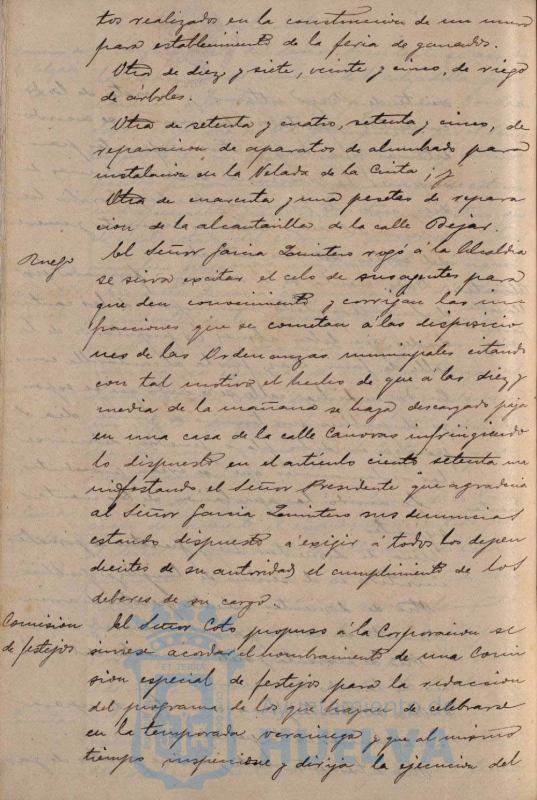 tos realizados en la construccion de un muro
para establecimiento de la feria de ganados.
Otra de diez y siete, veinte y cinco, de riego
de árboles.
Otra de setenta y cuatro, setenta y cinco, de
reparacion de aparatos de alumbrado para
instalacion en la Velada de la Cinta; y
Otra de cuarenta y una pesetas de repara
cion de la alcantarilla de la calle Bejar.
Ruego
El Señor Garcia Quintero rogó á la Alcaldia
se sirva excitar el celo de sus agentes para
que den conocimiento y corrijan las in-
fracciones que se cometan á las disposicio
nes de las Ordenanzas municipales citando
con tal motivo el hecho de que á las diez y
media de la mañana se haya descargado paja
en una casa de la calle Cánovas infringiendo
lo dispuesto en el artículo ciento setenta ma
nifestando el Señor Presidente que agradecia
al Señor Garcia Quintero sus denuncias
estando dispuesto á exigir á todos los depen
dientes de su autoridad el cumplimiento de los
deberes de su cargo
Comision
de festejos
El Señor Coto propuso á la Corporacion se
sirviese acordar el nombramiento de una Comi
sion especial de festejos para la redaccion
del programa de los que hayan de celebrarse
en la temporada veraniega y que al mismo
tiempo inspeccione y dirija la ejecucion del
Ayuntamiento de
HUELVA